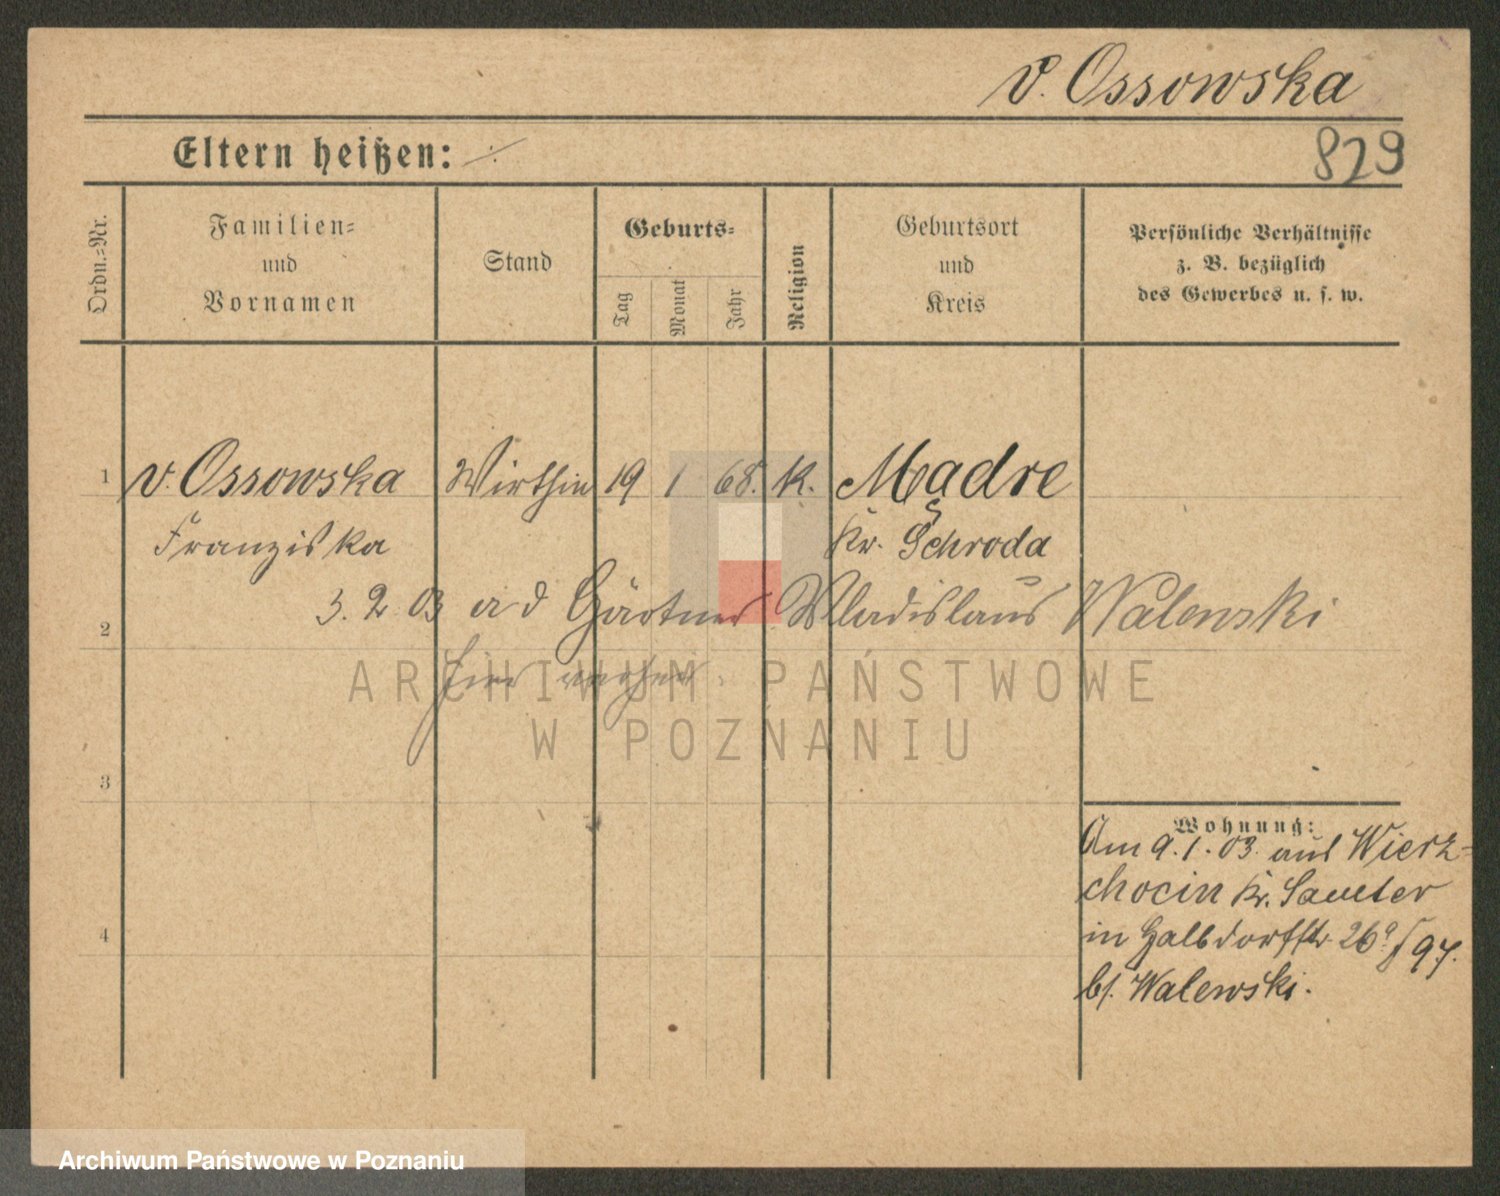 v. Ossowska
Eltern heißen: ·/·
829
Ordn.-Nr.
Familien-
und
Vornamen
Stand
Geburts-
Tag
Monat
Jahr
Religion
Geburtsort
und
Kreis
Persönliche Verhältnisse
z. B. bezüglich
des Gewerbes u. s. w.
1 v. Ossowska Wirthin 19 1 68. K. Mądre
Franziska Kr. Schroda
3. 2. 03 a d Gärtner Wladislaus Walewski
2
hier
ARCHIWUM PAŃSTWOWE
W POZNANIU
3
Wohnung:
Am 9. 1. 03. aus Wierz-
chocin Kr. Samter
in Halbdorfstr. 26a
97.
b/. Walewski.
4
Archiwum Państwowe w Poznaniu